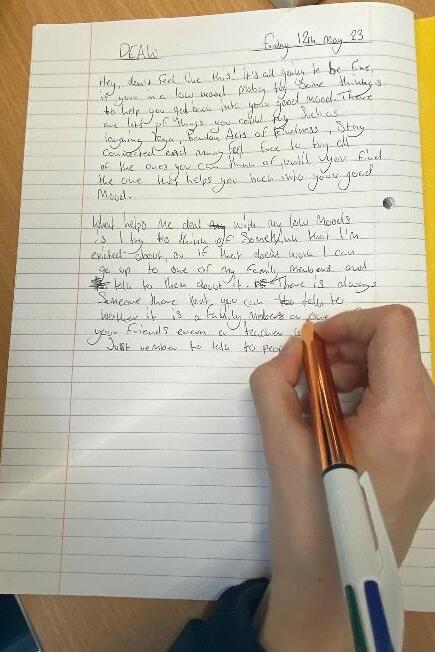 DEAW
Friday 12th May 23
Hey, don't feel like this! it's all going to be fine,
if your in a low mood try some things
to help you get back into your good mood. There
are lots of things you could try such as
laughing Yoga, Random Acts of Kindness, Stay
connected and many feel free to try all
of the ones you can think of until you find
the one that helps you back into your good
Mood.
What helps me deal with my low Moods
is I try to think of Somethink that I'm
exited about or if that doesnt work I can
go up to one of my family members and
talk to them about it. There is always
Someone there that you can talk to
wether it is a family
your friends even a teacher
Just to talk to